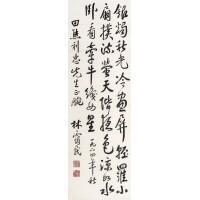 銀燭秋光冷畫屏輕羅小
扇撲流螢天階夜色涼如水
臥看牽牛織女星 一九八四年秋
利忠先生正腕
林